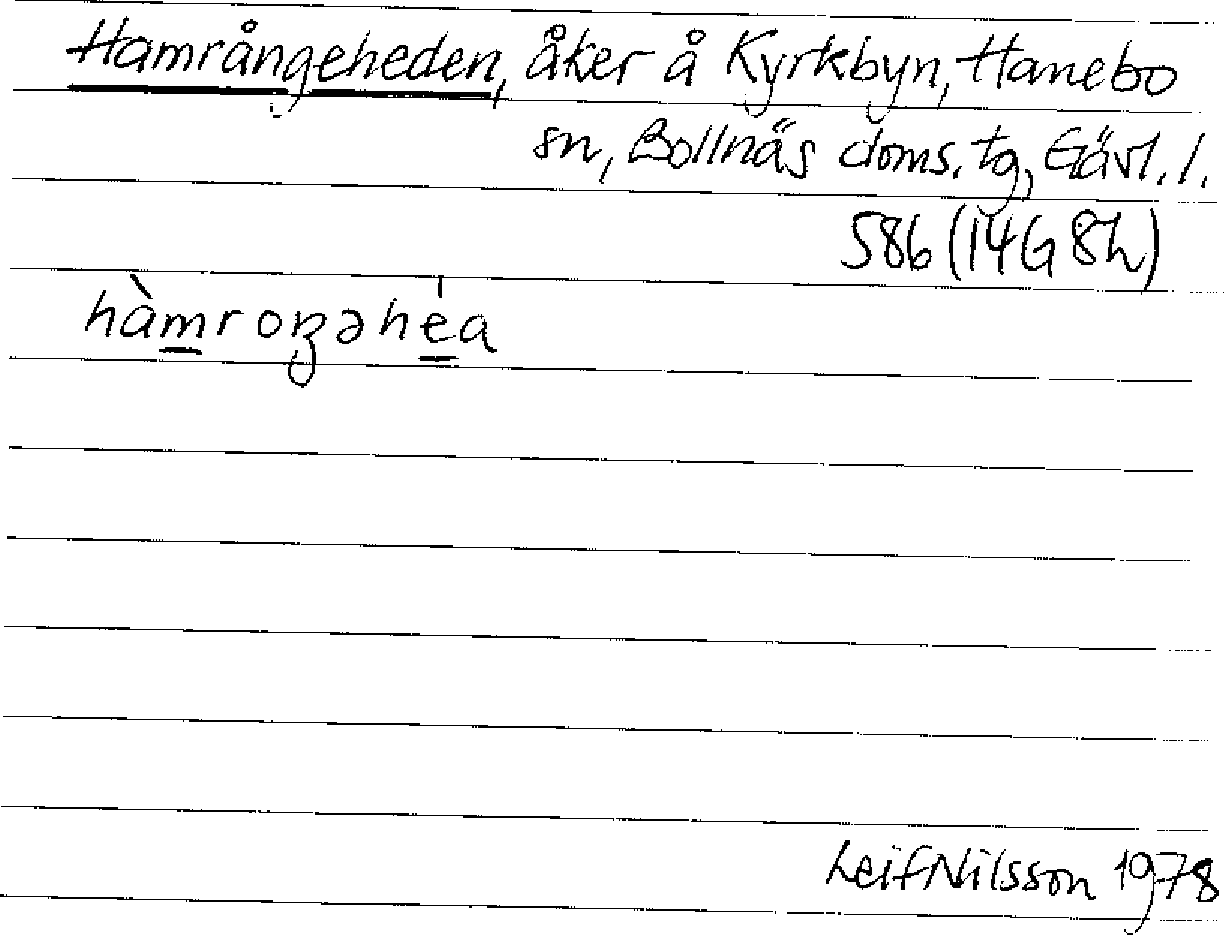 Hamrångeheden, åker å Kyrkbyn, Hanebo
sn, Bollnäs doms. tg, Gävl. l.
586 (14G 8h)
hàmroŋəhéa
Leif Nilsson 1978